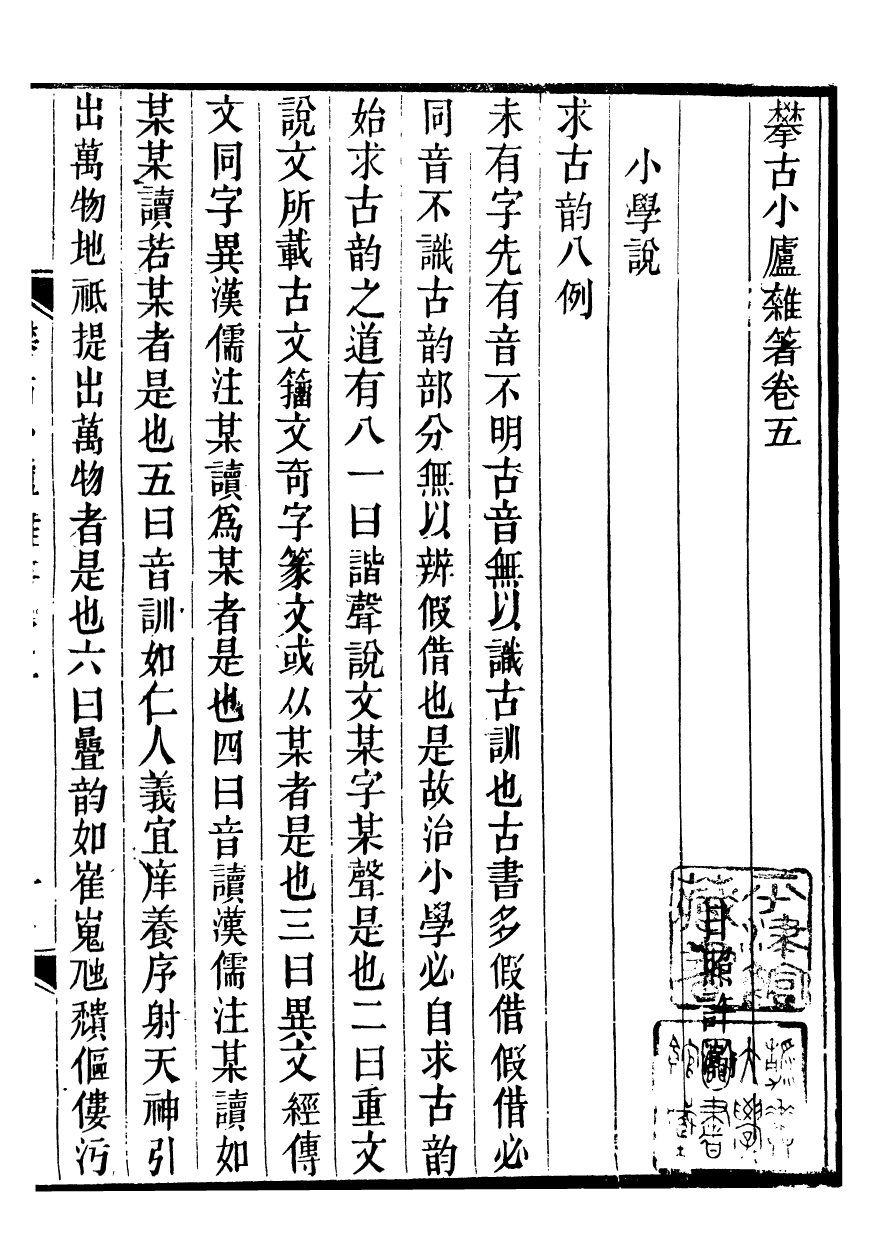 攀古小廬雜箸卷五
日照許瀚
小學說
求古韵八例
未有字先有音不明古音無以識古訓也古書多假借假借必
同音不識古韵部分無以辨假借也是故治小學必自求古韵
始求古韵之道有八一曰諧聲說文某字某聲是也二曰重文
說文所載古文籒文奇字篆文或从某者是也三曰異文經傳
文同字異漢儒注某讀爲某者是也四曰音讀漢儒注某讀如
某某讀若某者是也五曰音訓如仁人義宜庠養序射天神引
出萬物地祇提出萬物者是也六曰疊韵如崔嵬虺穨傴僂污